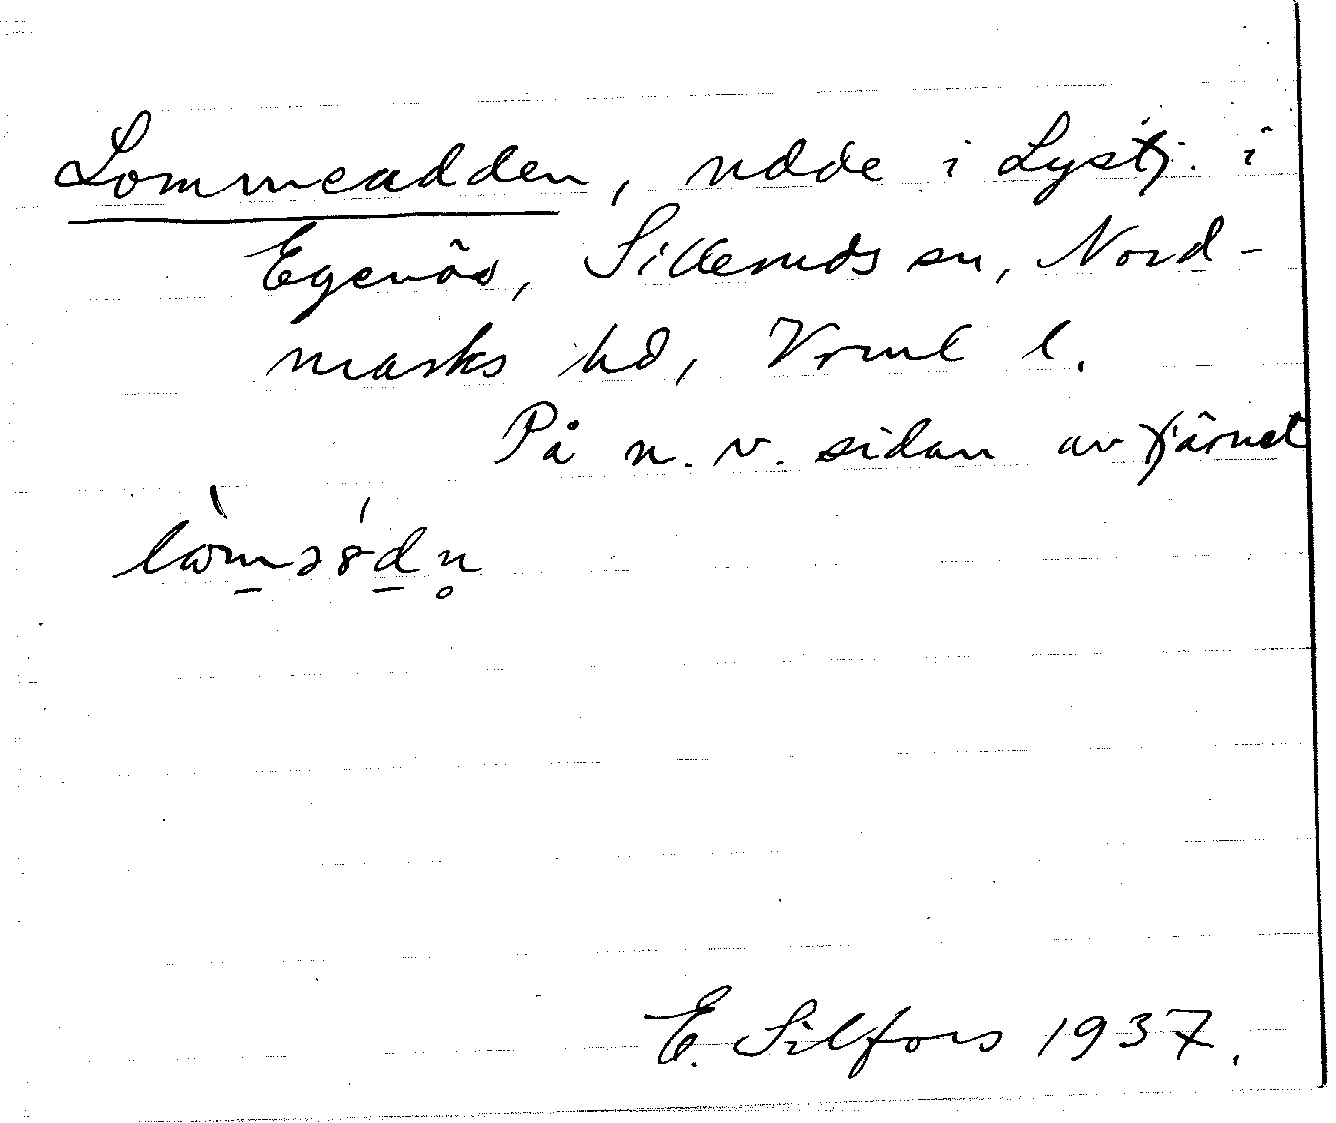 Lommeudden, udde i Lystj. i
Egenäs, Silleruds sn, Nord-
marks hd, Vrml l.
På n. v. sidan av tjärnet
E. Silfors 1937.